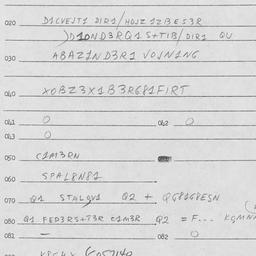 020 D1CVEJT1 DIR1/HOJZ 1ZB E S3R
)D1DND3RQ1S+TIB/DIR1 QU
030 ABAZ1ND3R1 VOJN1NG
040 XOBZ3X1B3RG81FIRT
041 0 042 0
043 0
050 C1M3RN
060 SPAL8N81
070 Q1 STALQV1 Q2 + QG8168ESN
080 Q1 FED3RS+T3R C1M3R Q2 = F... KGMNA
081 - 082 0